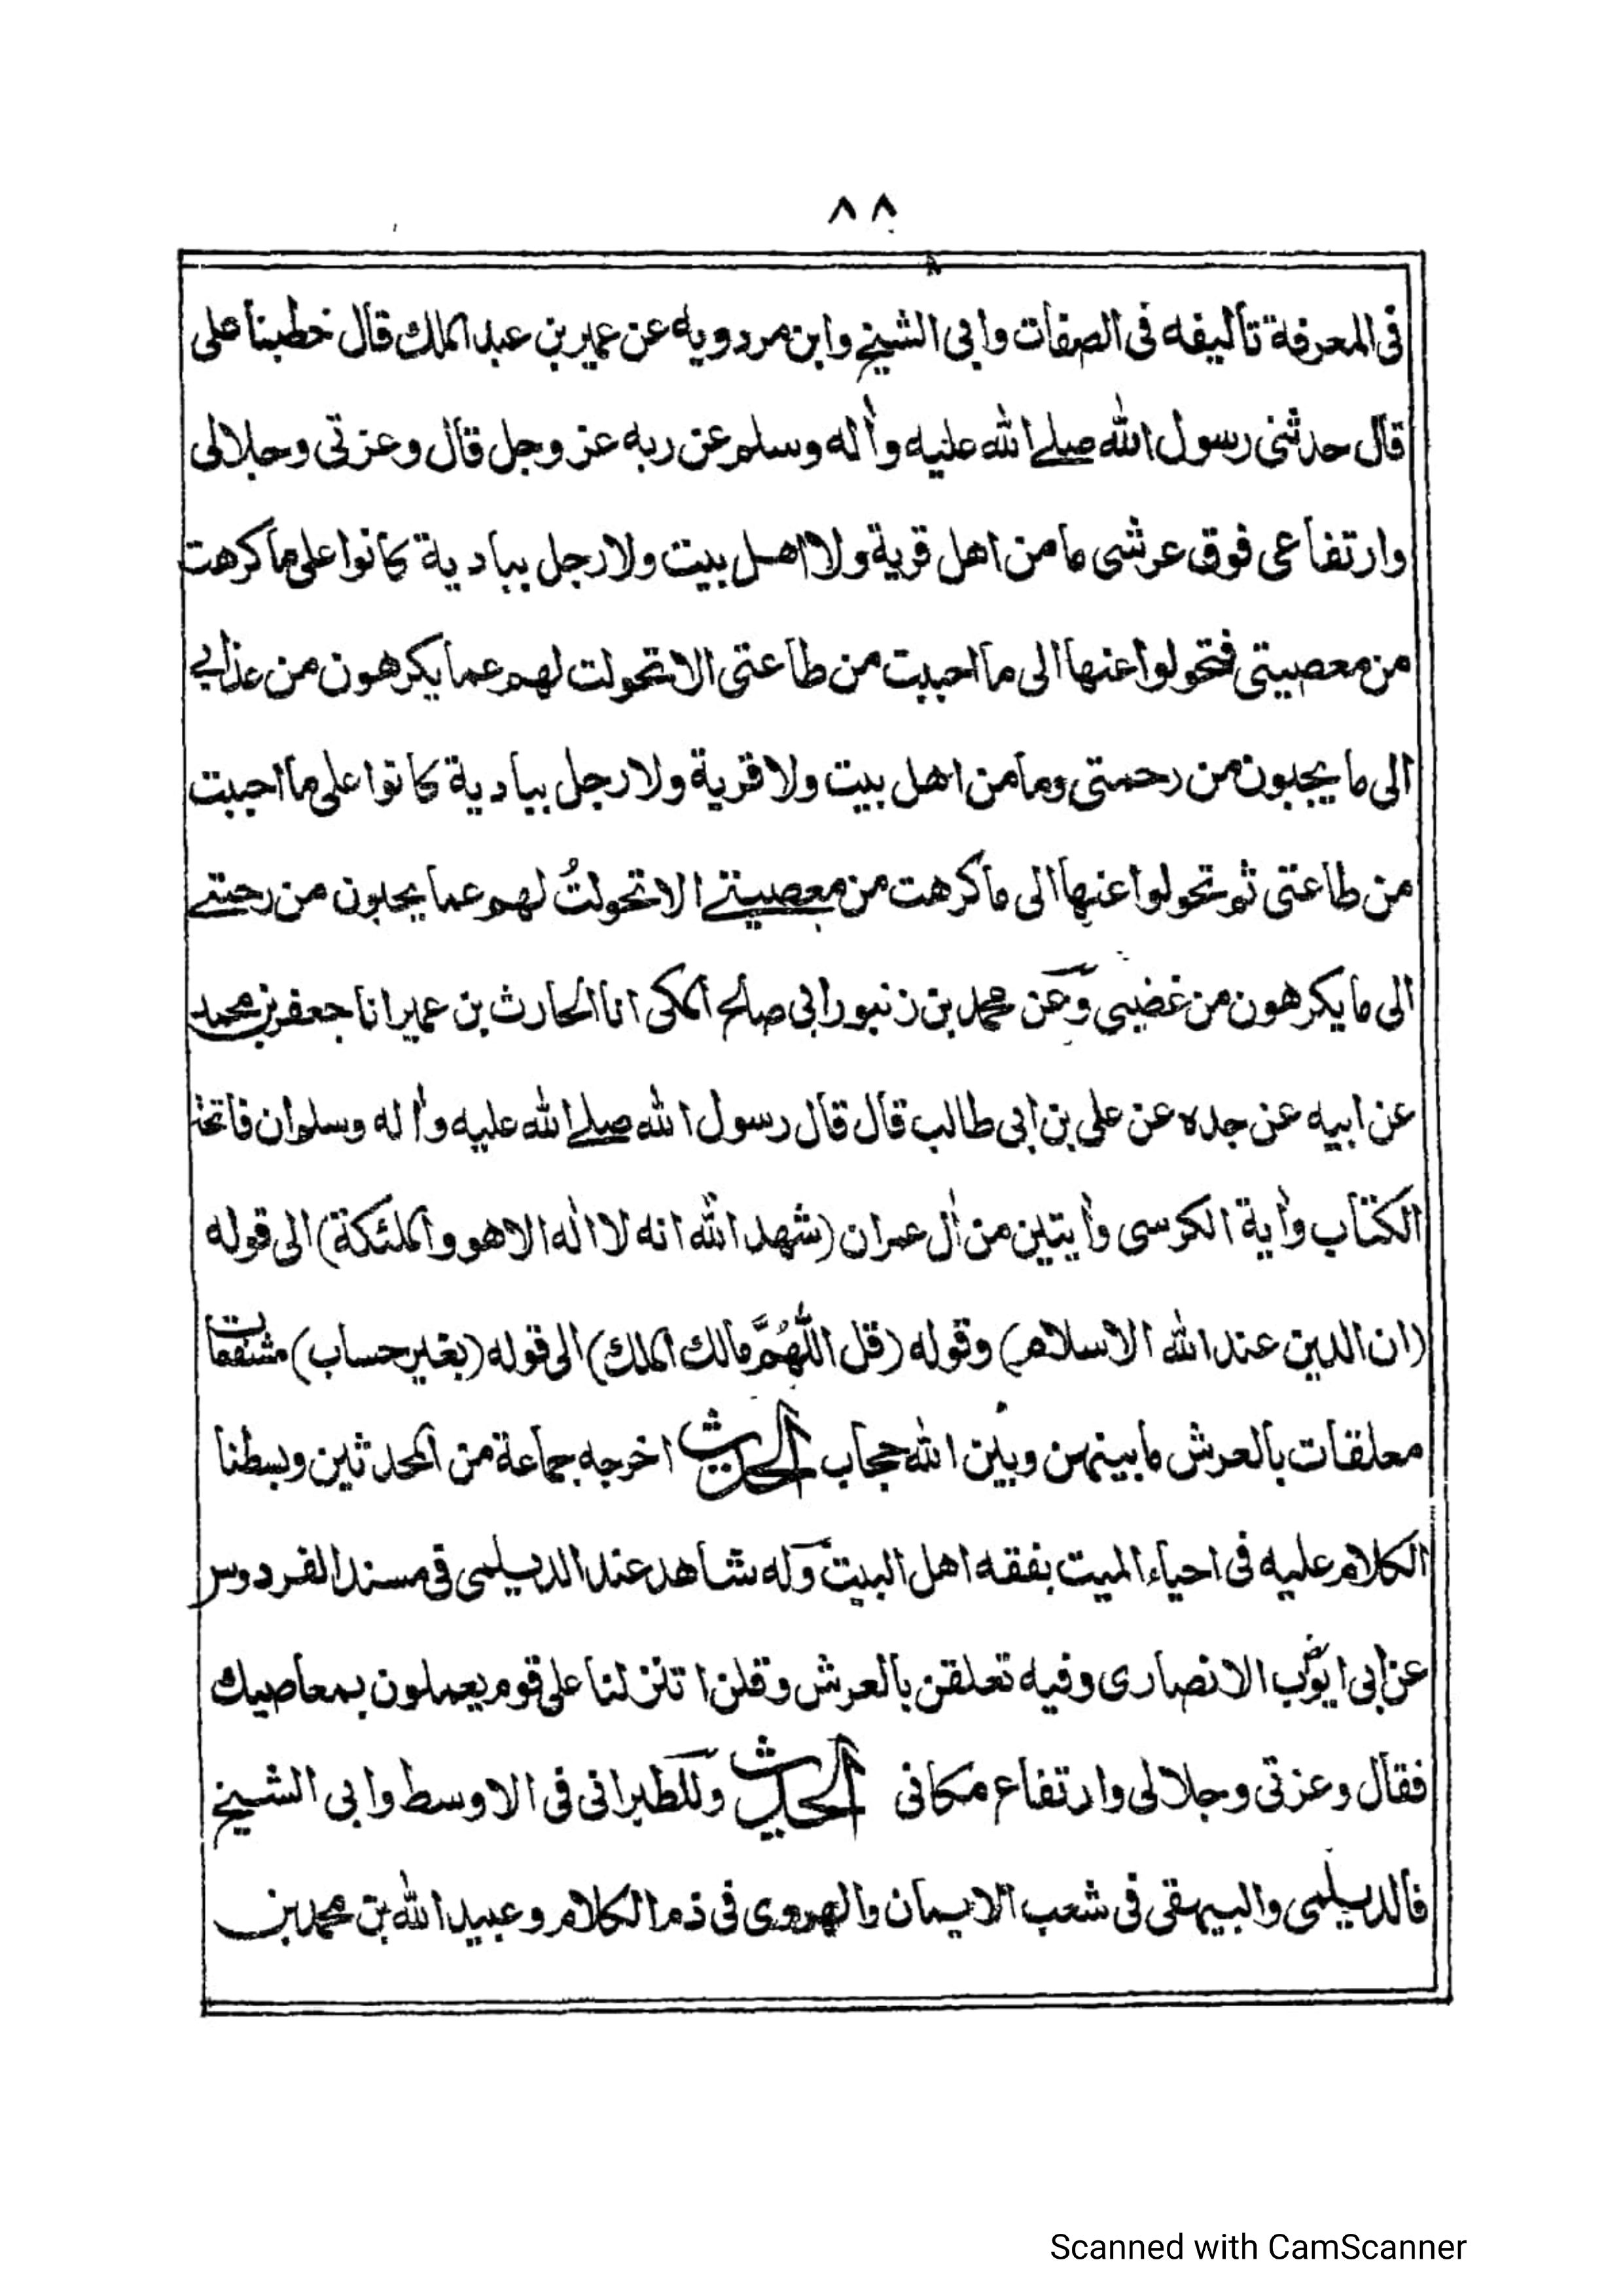 ٨٨
فى المعرفة تأليفه فى الصفات وابى الشيخ وابن مردويه عن عمير بن عبد الملك قال خطبنا على
قال حدثنى رسول الله صلے الله عليه واٰله وسلم عن ربه عز وجل قال وعزتى وجلالى
وارتفاعى فوق عرشى ما من اهل قرية ولا اهل بيت ولا رجل ببادية كانوا على ما كرهت
من معصيتى فتحولوا عنها الى ما احببت من طاعتى الا تحولت لهم عما يكرهون من عذابے
الى ما يحبون من رحمتى وما من اهل بيت ولا قرية ولا رجل ببادية كانوا على ما احببت
من طاعتى ثم تحولوا عنها الى ما كرهت من معصيتے الا تحولتُ لهم عما يحبون من رحمتے
الى ما يكرهون من غضبى وعن محمد بن زنبور ابى صالح المكى انا الحارث بن عمير انا جعفر بن محمد
عن ابيه عن جده عن على بن ابى طالب قال قال رسول الله صلے الله عليه واٰله وسلم ان فاتحة
الكتاب واٰية الكرسى واٰيتين من اٰل عمران (شهد الله انه لا اله الا هو والملئكة) الى قوله
(ان الدين عند الله الاسلام) وقوله (قل اللّٰهُمَّ مالك الملك) الى قوله (بغير حساب) مشفعات
معلقات بالعرش ما بينهن وبين الله حجاب الحديث اخرجه جماعة من المحدثين وبسطنا
الكلام عليه فى احياء الميت بفقه اهل البيت وله شاهد عند الديلمى فى مسند الفردوس
عن ابى ايوب الانصارى وفيه تعلقن بالعرش وقلن اتنزلنا على قوم يعملون بمعاصيك
فقال وعزتى وجلالى وارتفاع مكانى الحديث وللطبرانى فى الاوسط وابى الشيخ
فالديلمى والبيهقى فى شعب الايمان والهروى فى ذم الكلام وعبيد الله بن محمد بن
Scanned with CamScanner